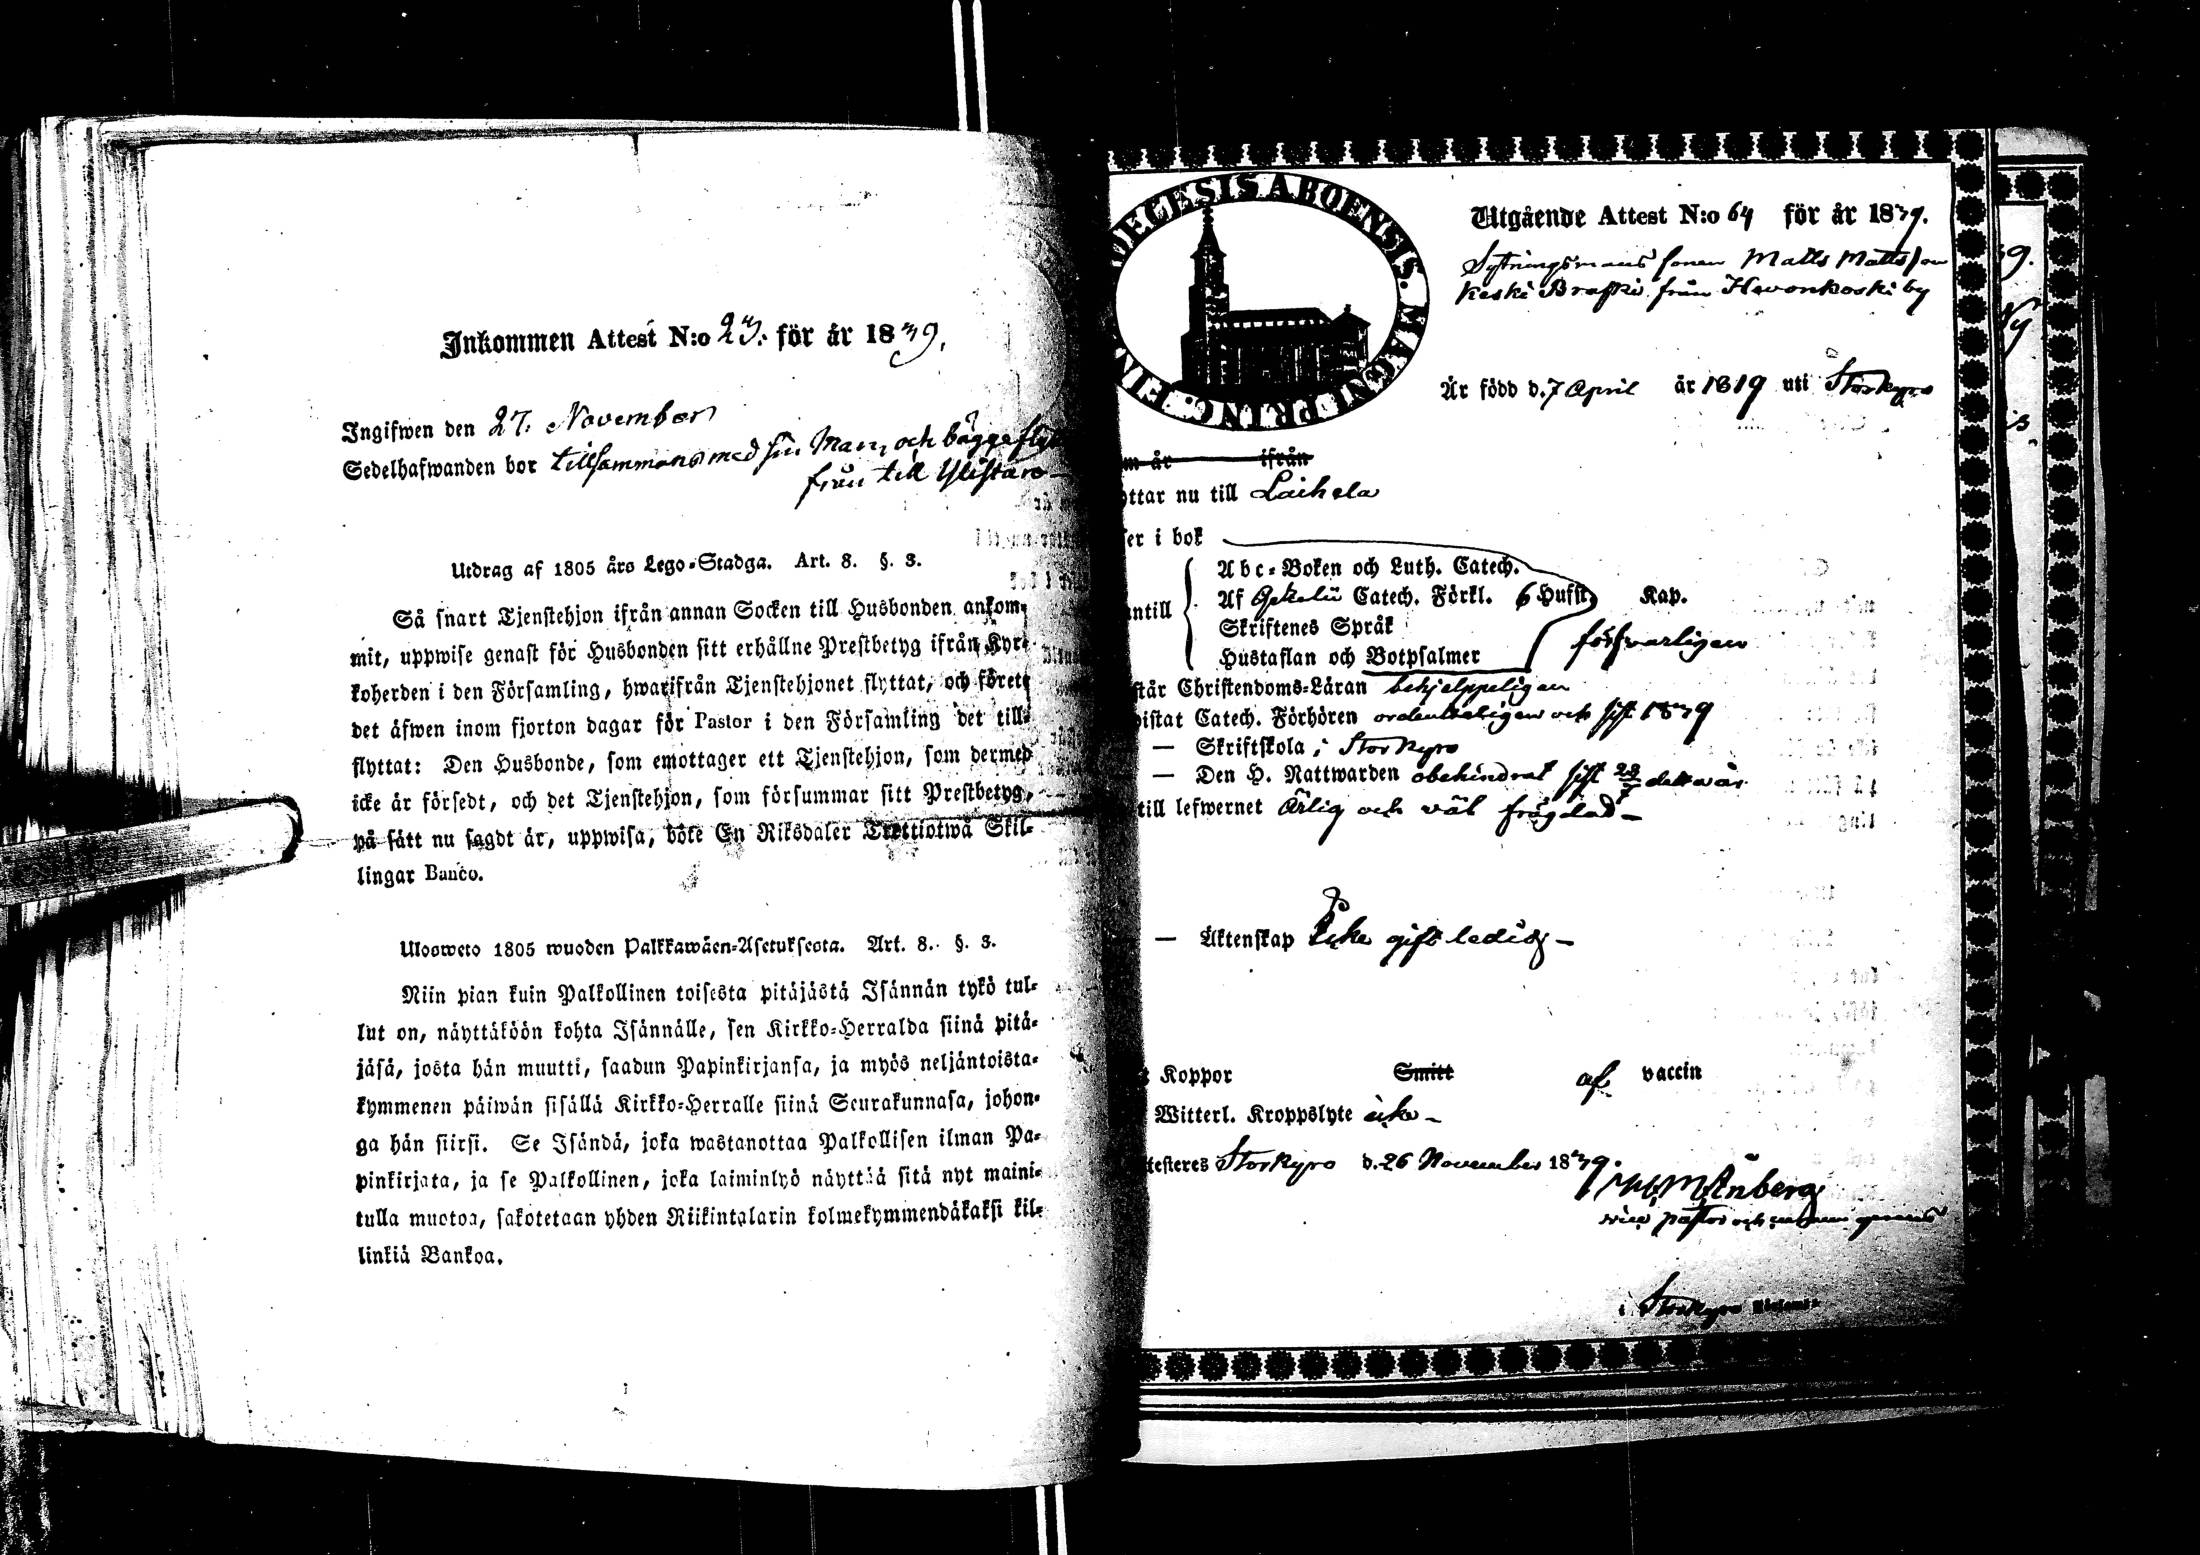 Inkommen Attest N:o 23. för år 1839.
Ingifwen den 27. November
Sedelhafwanden bor tillsammans med sin Man, och bägge
från till Ylistaro
Utdrag af 1805 års Lego-Stadga. Art. 8. §. 3.
Så snart Tjenstehjon ifrån annan Socken till Husbonden ankom-
mit, uppwise genast för Husbonden sitt erhållne Prestbetyg ifrån Kyr-
koherden i den Församling, hwarifrån Tjenstehjonet flyttat, och förete
det äfwen inom fjorton dagar för Pastor i den Församling det till-
flyttat: Den Husbonde, som emottager ett Tjenstehjon, som dermed
icke är försedt, och det Tjenstehjon, som försummar sitt Prestbetyg,
på sätt nu sagdt är, uppwisa, böte En Riksdaler Trettiotwå Skil-
lingar Banco.
Ulosweto 1805 wuoden Palkkawäen-Asetuksesta. Art. 8. §. 3.
Niin pian kuin Palkollinen toisesta pitäjästä Isännän tykö tul-
lut on, näyttäköön kohta Isännälle, sen Kirkko-Herralda siinä pitä-
jäsä, josta hän muutti, saadun Papinkirjansa, ja myös neljäntoista-
kymmenen päiwän sisällä Kirkko-Herralle siinä Seurakunnasa, johon-
ga hän siirsi. Se Isändä, joka wastanottaa Palkollisen ilman Pa-
pinkirjata, ja se Palkollinen, joka laiminlyö näyttää sitä nyt maini-
tulla muotoa, sakotetaan yhden Riikintalarin kolmekymmendäkaksi kil-
linkiä Bankoa.
DIECESIS ABOENSIS. MAGNI PRINC. FIN
Utgående Attest N:o 64 för år 1839.
Sytningsmans sonen Matts Mattsson
Keski från Hevonkoski by
Är född d. 7 April år 1819 uti Storkyro
m år ifrån
yttar nu till Laihela
ser i bok
Abc-Boken och Luth. Catech.
antill Af Catech. Förkl. 6 Hufst. Kap.
Skriftenes Språk
Hustaflan och Botpsalmer försvarligen
står Christendoms-Läran behjelpeligen
bistat Catech. Förhören ordenteligen och sist 1839
— Skriftskola i Storkyro
— Den H. Nattwarden obehindrat sist detta år
till lefwernet Ärlig och väl frägdad —
— Äktenskap Icke gift ledig —
Koppor Smitt af vaccin
Witterl. Kroppslyte icke —
testeres Storkyro d. 26 November 1839.
vice pastor och
i Storkyro